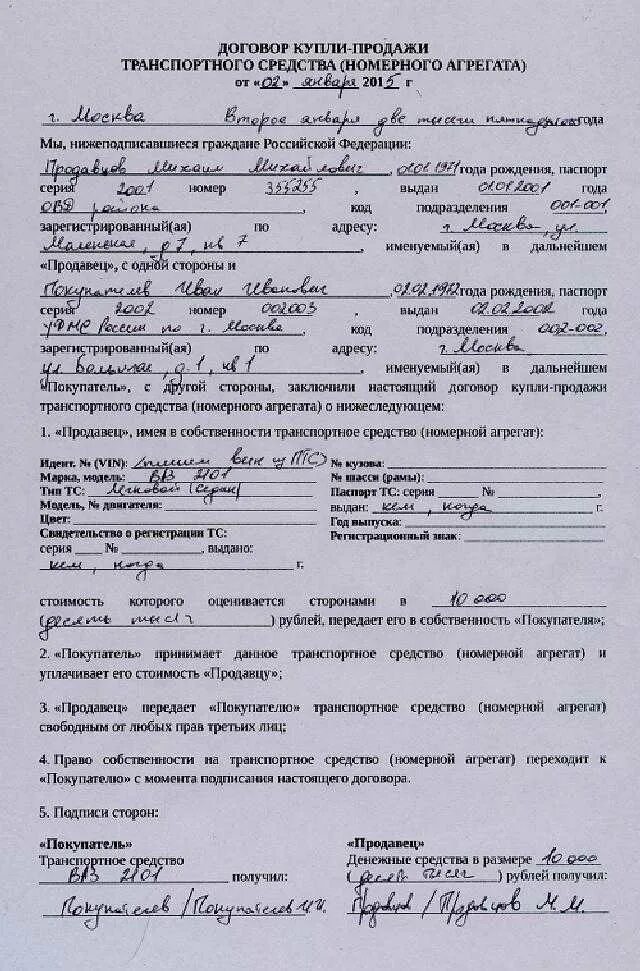 ДОГОВОР КУПЛИ-ПРОДАЖИ
ТРАНСПОРТНОГО СРЕДСТВА (НОМЕРНОГО АГРЕГАТА)
от «02» января 2015 г
г. Москва Второе января две тысячи года
Мы, нижеподписавшиеся граждане Российской Федерации:
Продавцов Михаил Михайлович, 01.01.1971 года рождения, паспорт
серия 2001 номер 355255, выдан 01.01.2001 года
ОВД района, код подразделения 001-001,
зарегистрированный(ая) по адресу: г. Москва, ул.
д 7, кв 7, именуемый(ая) в дальнейшем
«Продавец», с одной стороны и
Покупателев Иван Иванович, 02.02.1972 года рождения, паспорт
серия 2002 номер 002003, выдан 02.02.2002 года
УФМС России по г. Москва, код подразделения 002-002,
зарегистрированный(ая) по адресу: г. Москва
ул д. 1, кв 1, именуемый(ая) в дальнейшем
«Покупатель», с другой стороны, заключили настоящий договор купли-продажи
транспортного средства (номерного агрегата) о нижеследующем:
1. «Продавец», имея в собственности транспортное средство (номерной агрегат):
Идент. № (VIN): (пишем вин из ПТС) № кузова:
Марка, модель: ВАЗ 2101 № шасси (рамы):
Тип ТС: Легковой (седан) Паспорт ТС: серия № ,
Модель, № двигателя: выдан: кем, когда г.
Цвет: Год выпуска:
Свидетельство о регистрации ТС: Регистрационный знак:
серия № , выдано:
кем, когда г.
стоимость которого оценивается сторонами в 10 000
(десять тысяч) рублей, передает его в собственность «Покупателя»;
2. «Покупатель» принимает данное транспортное средство (номерной агрегат) и
уплачивает его стоимость «Продавцу»;
3. «Продавец» передает «Покупателю» транспортное средство (номерной агрегат)
свободным от любых прав третьих лиц;
4. Право собственности на транспортное средство (номерной агрегат) переходит к
«Покупателю» с момента подписания настоящего договора.
5. Подписи сторон:
«Покупатель» «Продавец»
Транспортное средство Денежные средства в размере 10 000
ВАЗ 2101 получил: (десять тысяч) рублей получил:
Покупателев / Покупателев И.И. Продавцов / Продавцов М.М.